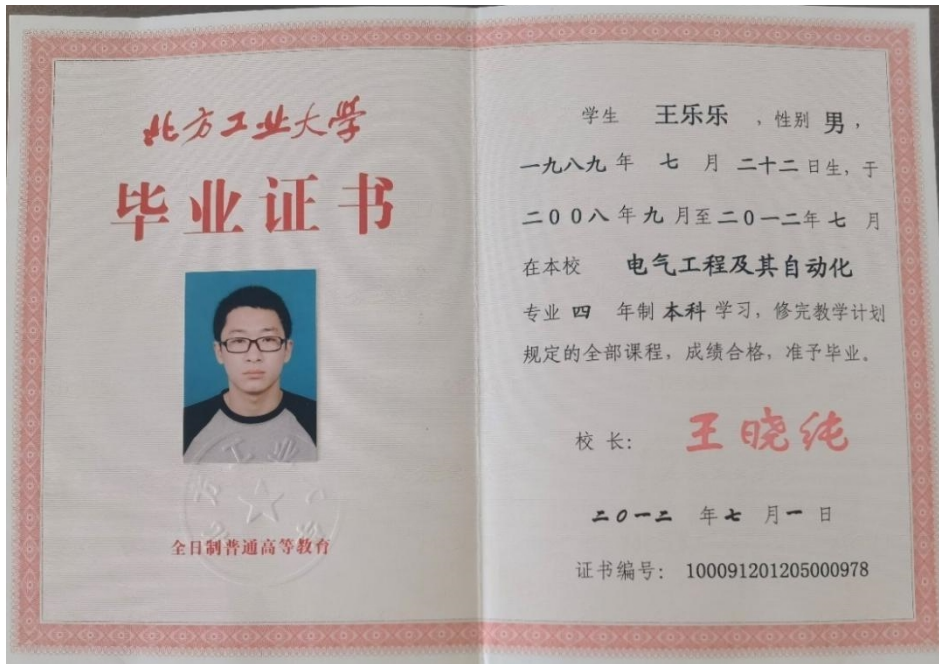 北方工业大学
毕业证书
全日制普通高等教育
学生 王乐乐 ,性别 男,
一九八九 年 七 月 二十二 日生,于
二00八 年 九 月至 二0一二 年 七 月
在本校 电气工程及其自动化
专业 四 年制 本科 学习,修完教学计划
规定的全部课程,成绩合格,准予毕业。
校 长: 王晓纯
二0一二 年 七 月 一 日
证书编号: 100091201205000978